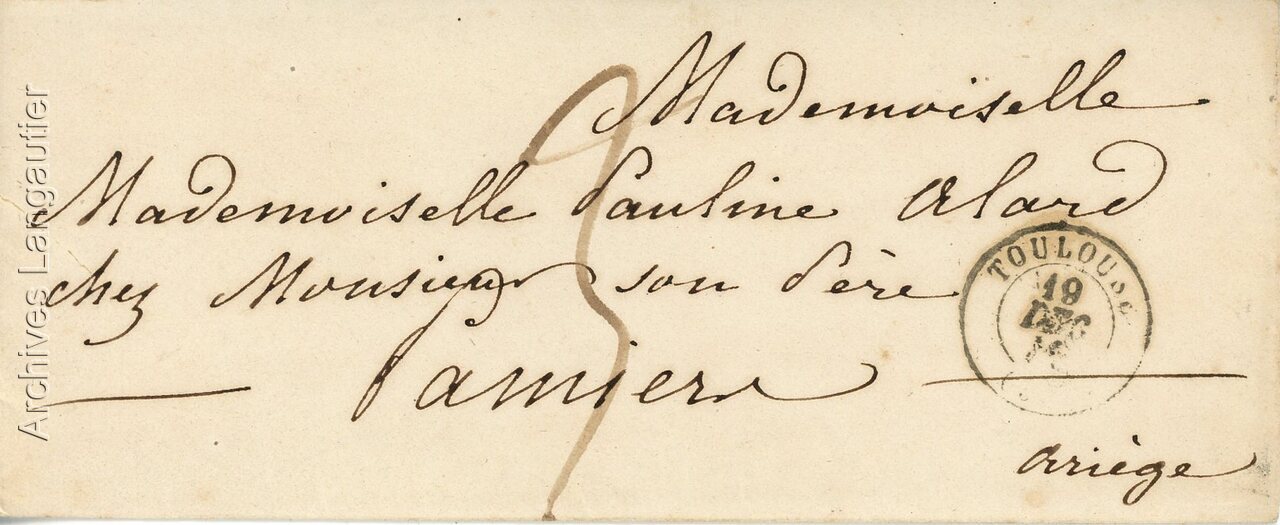 Mademoiselle
Mademoiselle Pauline Alard
chez Monsieur son Père
Pamiers
ariège
TOULOUSE
19
DEC
3
Archives Langautier